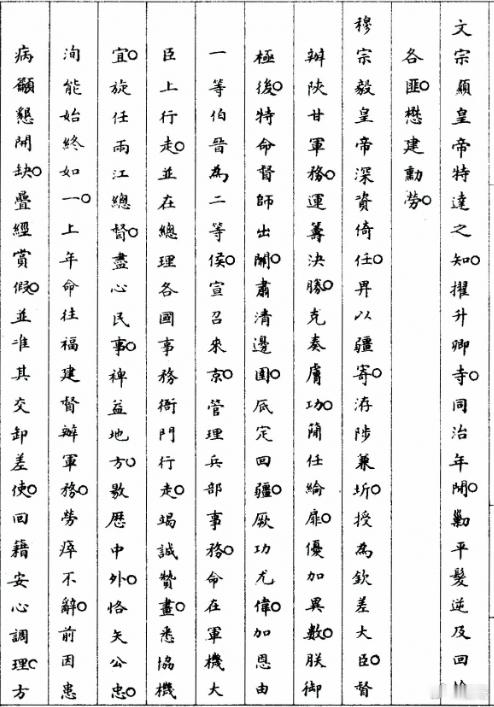 文宗顯皇帝特達之知○擢升卿寺○同治年間○勦平髮逆及回
各匪懋建勳勞○
穆宗毅皇帝深資倚任○畀以疆寄洊陟兼圻○授為欽差大臣○督
辦陝甘軍務○運籌決勝○克奏膚功○簡任綸扉○優加異數○朕御
極後○特命督師出關○肅清邊圉○底定回疆○厥功尤偉加恩由
一等伯晉為二等侯○宣召來京○管理兵部事務○命在軍機大
臣上行走○並在總理各國事務衙門行走○竭誠贊畫○悉協機
宜○旋任兩江總督○盡心民事○裨益地方○敭歷中外○恪矢公忠○
洵能始終如一○上年命往福建督辦軍務○勞瘁不辭○前因患
病籲懇開缺○疊經賞假○並准其交卸差使○回籍安心調理○方